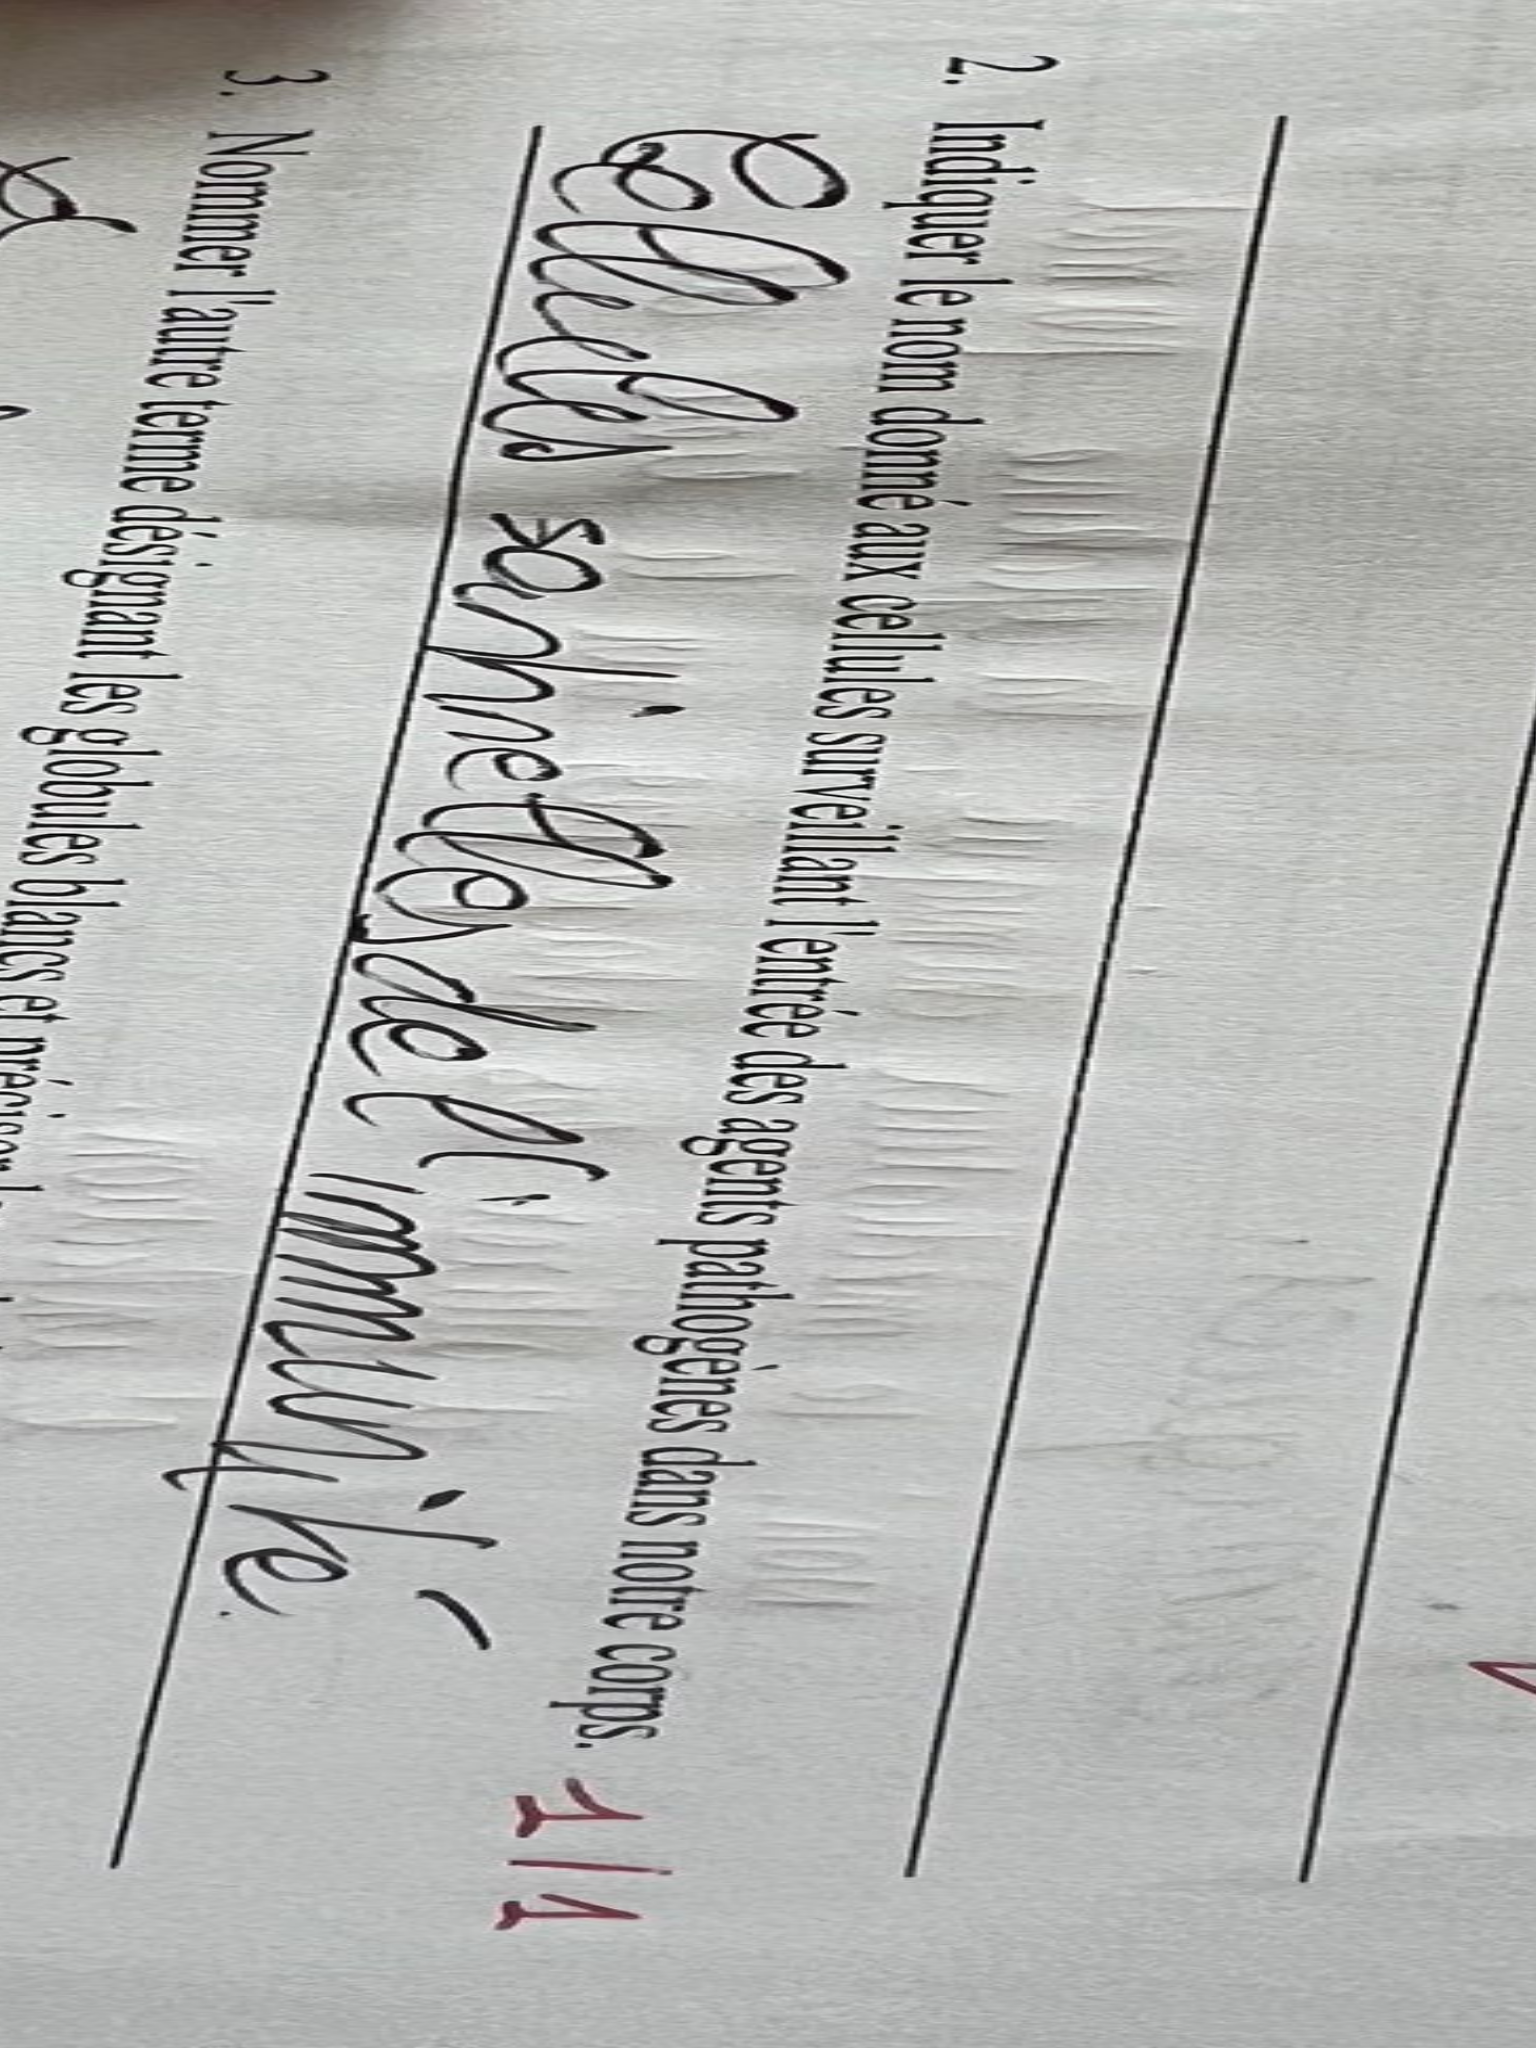 2. Indiquer le nom donné aux cellules surveillant l'entrée des agents pathogènes dans notre corps. 1/1
Cellules sentinelles de l'immunité
3. Nommer l'autre terme désignant les globules blancs et préciser